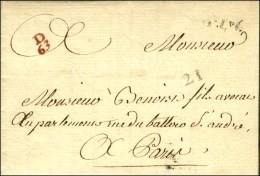 D
63
A Monsieur
21
Monsieur Benoist fils avocat
Au parlement rue du battoir St andré
A Paris